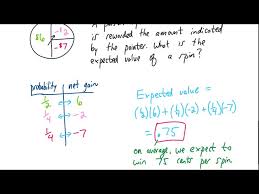 is rewarded the amount indicated
by the pointer. What is the
expected value of a spin?
$6
-$2
-$7
probability net gain
1/2 6
1/4 -2
1/4 -7
Expected value =
(1/2)(6) + (1/4)(-2) + (1/4)(-7)
= .75
on average, we expect to
win 75 cents per spin